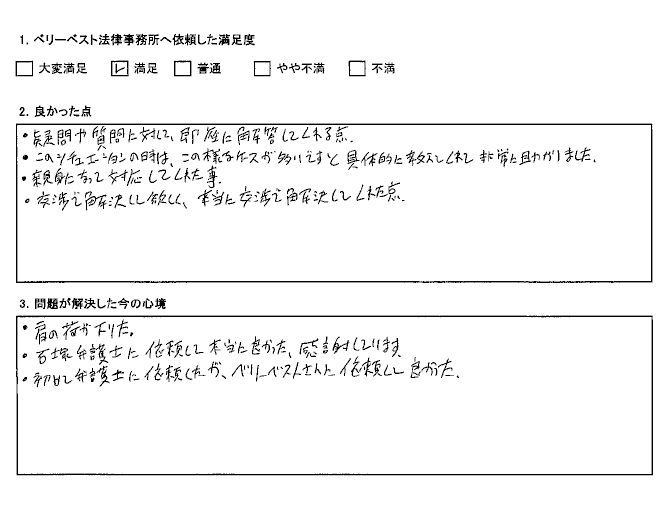 1. ベリーベスト法律事務所へ依頼した満足度
大変満足 レ 満足 普通 やや不満 不満
2. 良かった点
・疑問や質問に対して、即座に解答してくれる点。
・このシチュエーションの時は、この様なケースが多いですと具体的に教えてくれて非常に助かりました。
・親身になって対応してくれた事。
・交渉で解決して欲しく、本当に交渉で解決してくれた点。
3. 問題が解決した今の心境
・肩の荷が下りた。
・石塚弁護士に依頼して本当に良かった、感謝しています
・初めて弁護士に依頼したが、ベリーベストさんに依頼して良かった。